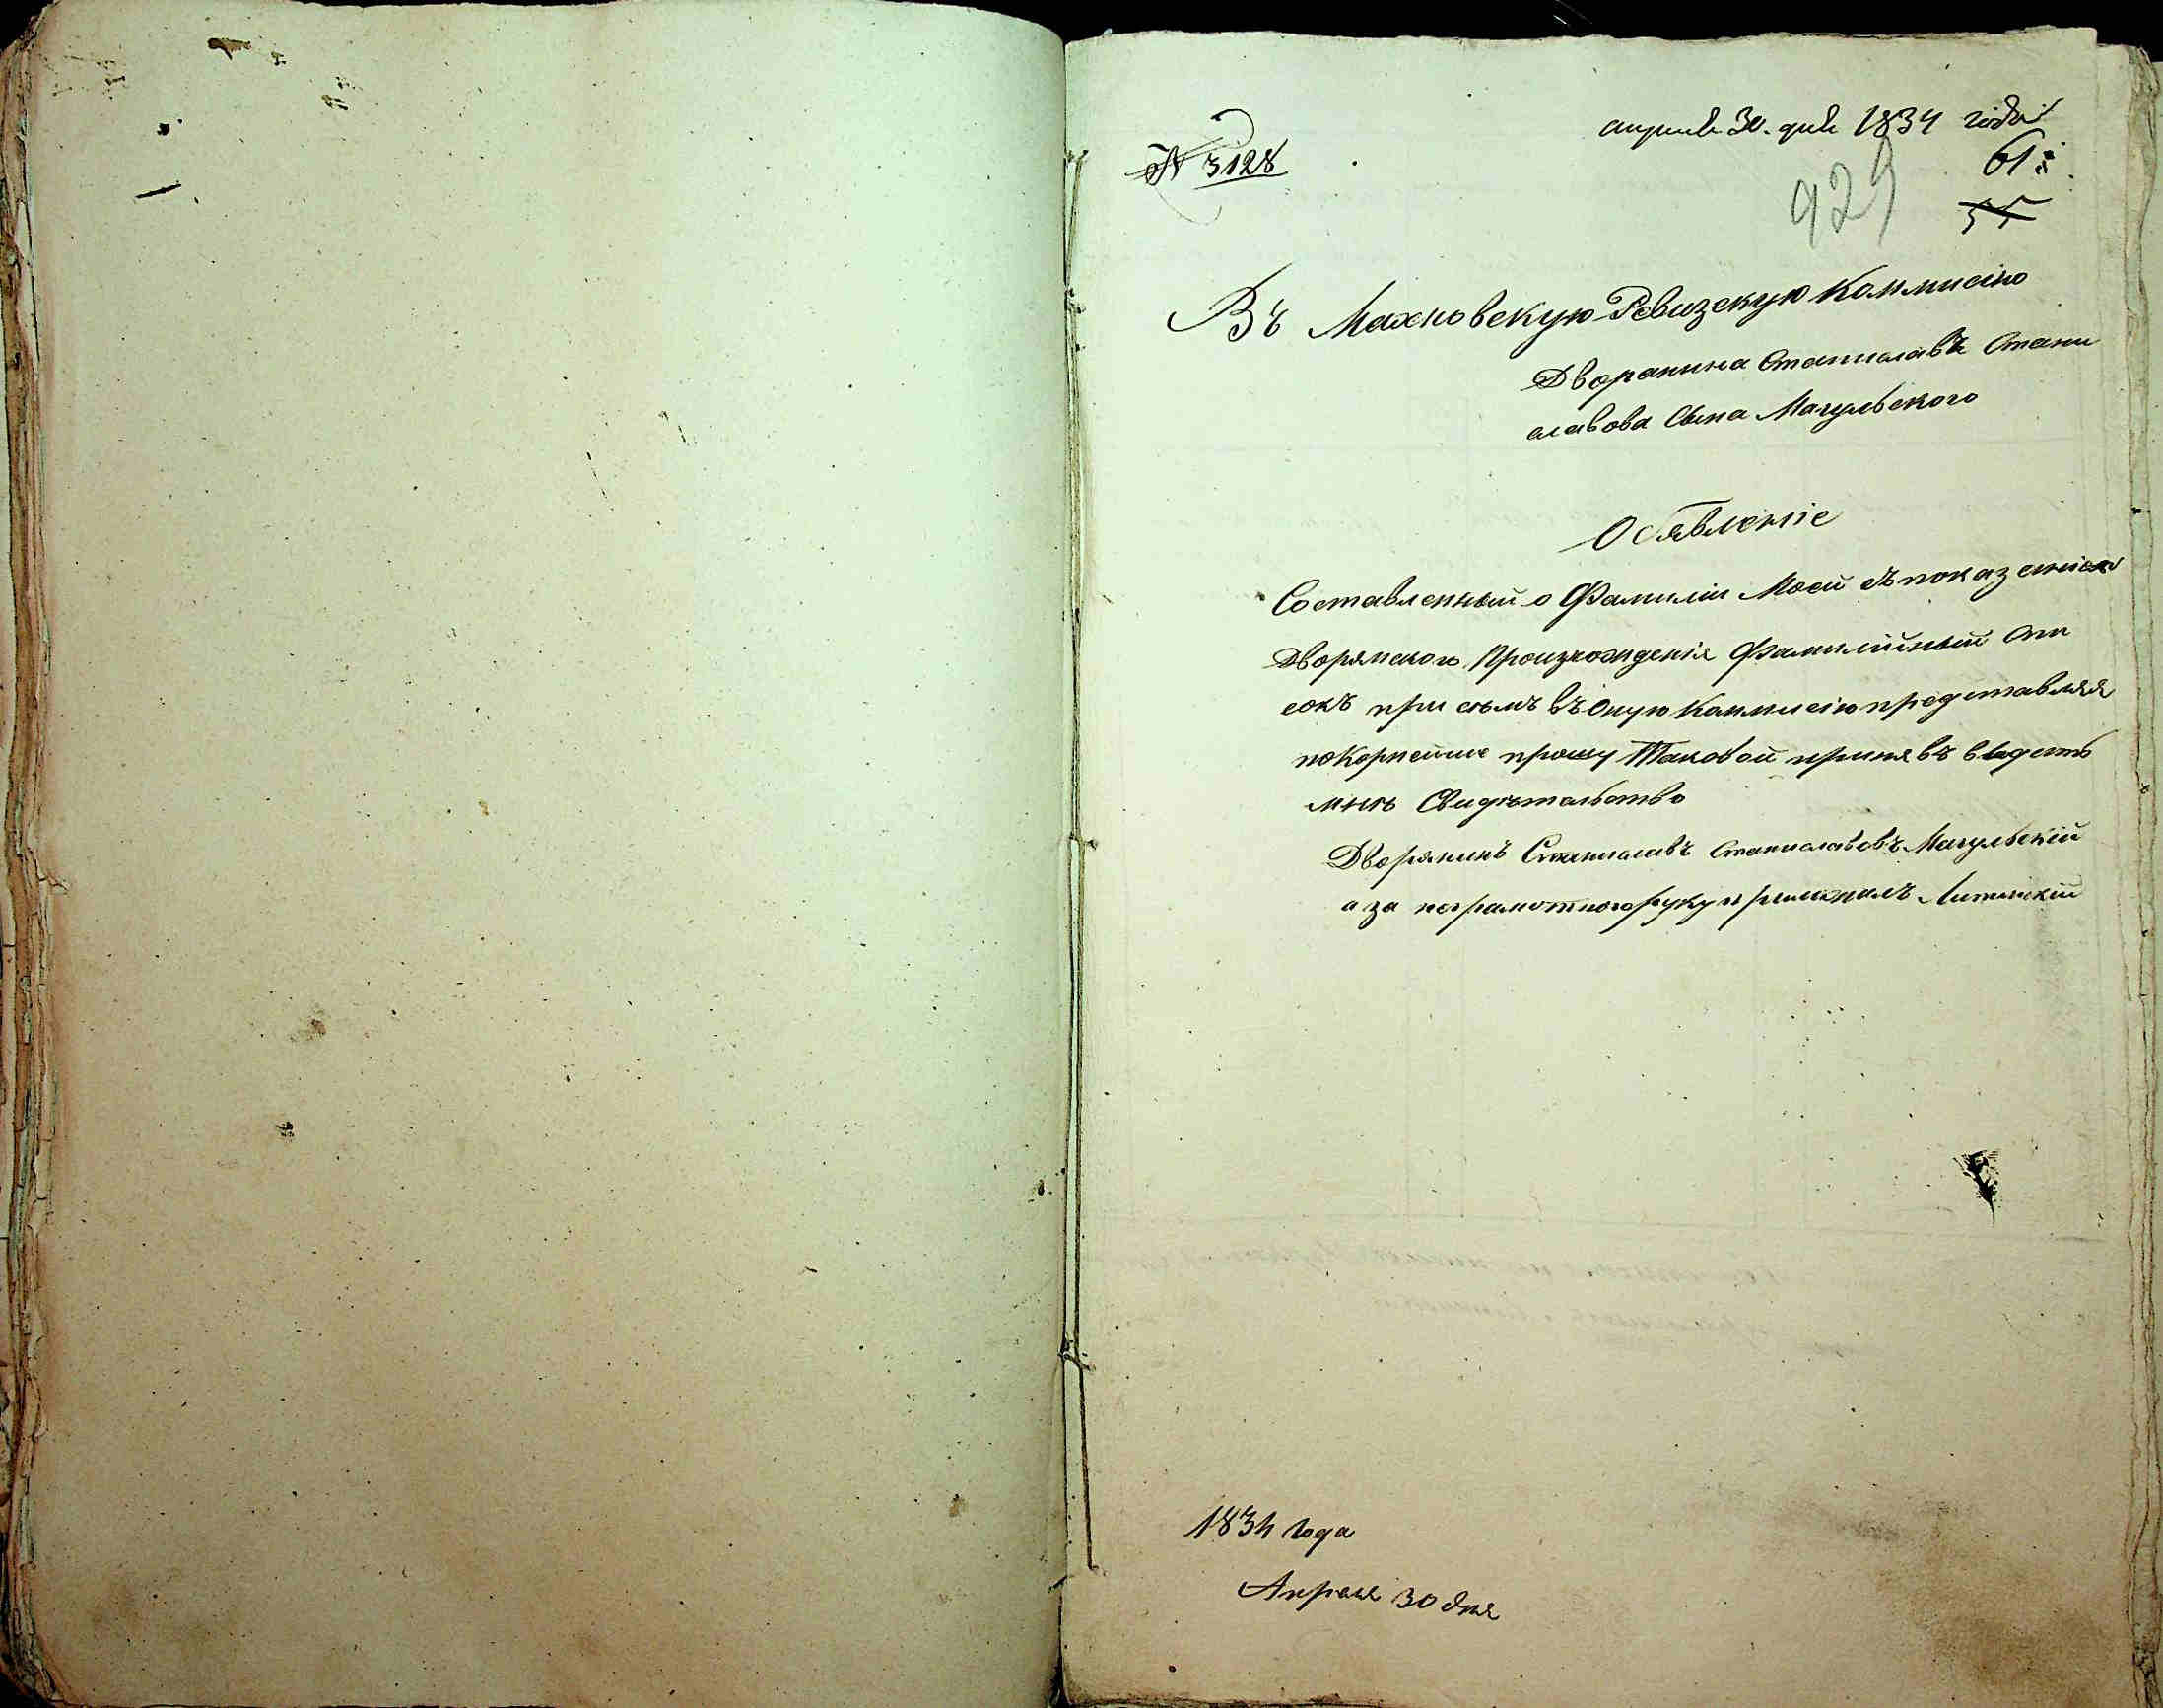 апреля 30. дня 1834 года
№ 3128
61
929
55
Въ Махновскую Ревизскую Коммисию
Дворанина Станиславъ Стани
славова Сына Магульского
Обявленіе
Составленный о Фамиліи Моей съ показаніемъ
Дворянского Произхожденія Фамилійный Спи
сокъ при семъ въ Оную Коммисію представляя
покорнейше прошу Таковой принявъ выдать
мнѣ Свидѣтельство
Дворянинъ Станиславъ Станиславовъ Магульскій
а за неграмотного руку приложилъ
1834 года
Апреля 30 дня